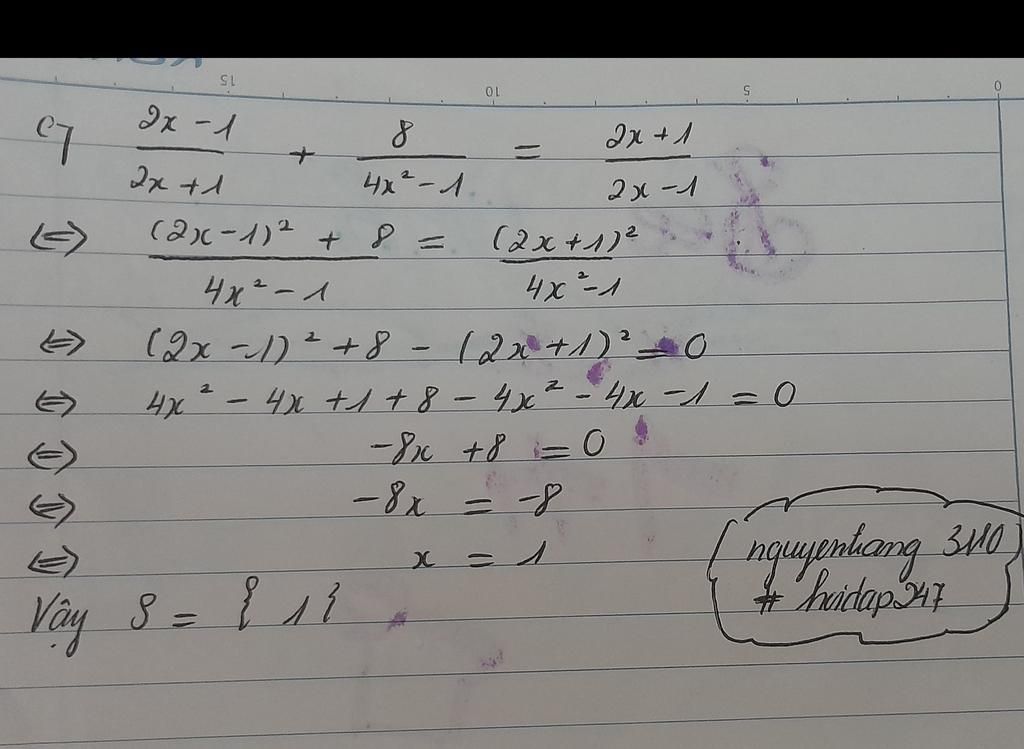 15 10 5 0
c) (2x - 1)/(2x + 1) + 8/(4x² - 1) = (2x + 1)/(2x - 1)
⇔ ((2x - 1)² + 8)/(4x² - 1) = (2x + 1)²/(4x² - 1)
⇔ (2x - 1)² + 8 - (2x + 1)² = 0
⇔ 4x² - 4x + 1 + 8 - 4x² - 4x - 1 = 0
⇔ -8x + 8 = 0
⇔ -8x = -8
⇔ x = 1
Vậy S = { 1 }
# hoidap247